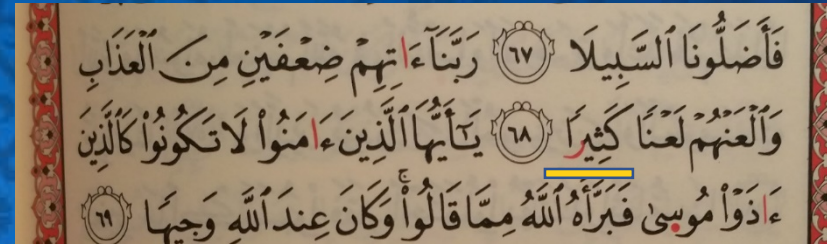 فَأَضَلُّونَا اَ۬لسَّبِيلَا ٦٧ رَبَّنَآ ءَاتِهِمْ ضِعْفَيْنِ مِنَ اَ۬لْعَذَابِ
وَالْعَنْهُمْ لَعْناٗ كَثِيراٗ ٦٨ يَٰٓأَيُّهَا اَ۬لَّذِينَ ءَامَنُواْ لَا تَكُونُواْ كَالَّذِينَ
ءَاذَوْاْ مُوسىٰ فَبَرَّأَهُ اُ۬للَّهُ مِمَّا قَالُواْۖ وَكَانَ عِندَ اَ۬للَّهِ وَجِيهاٗ ٦٩